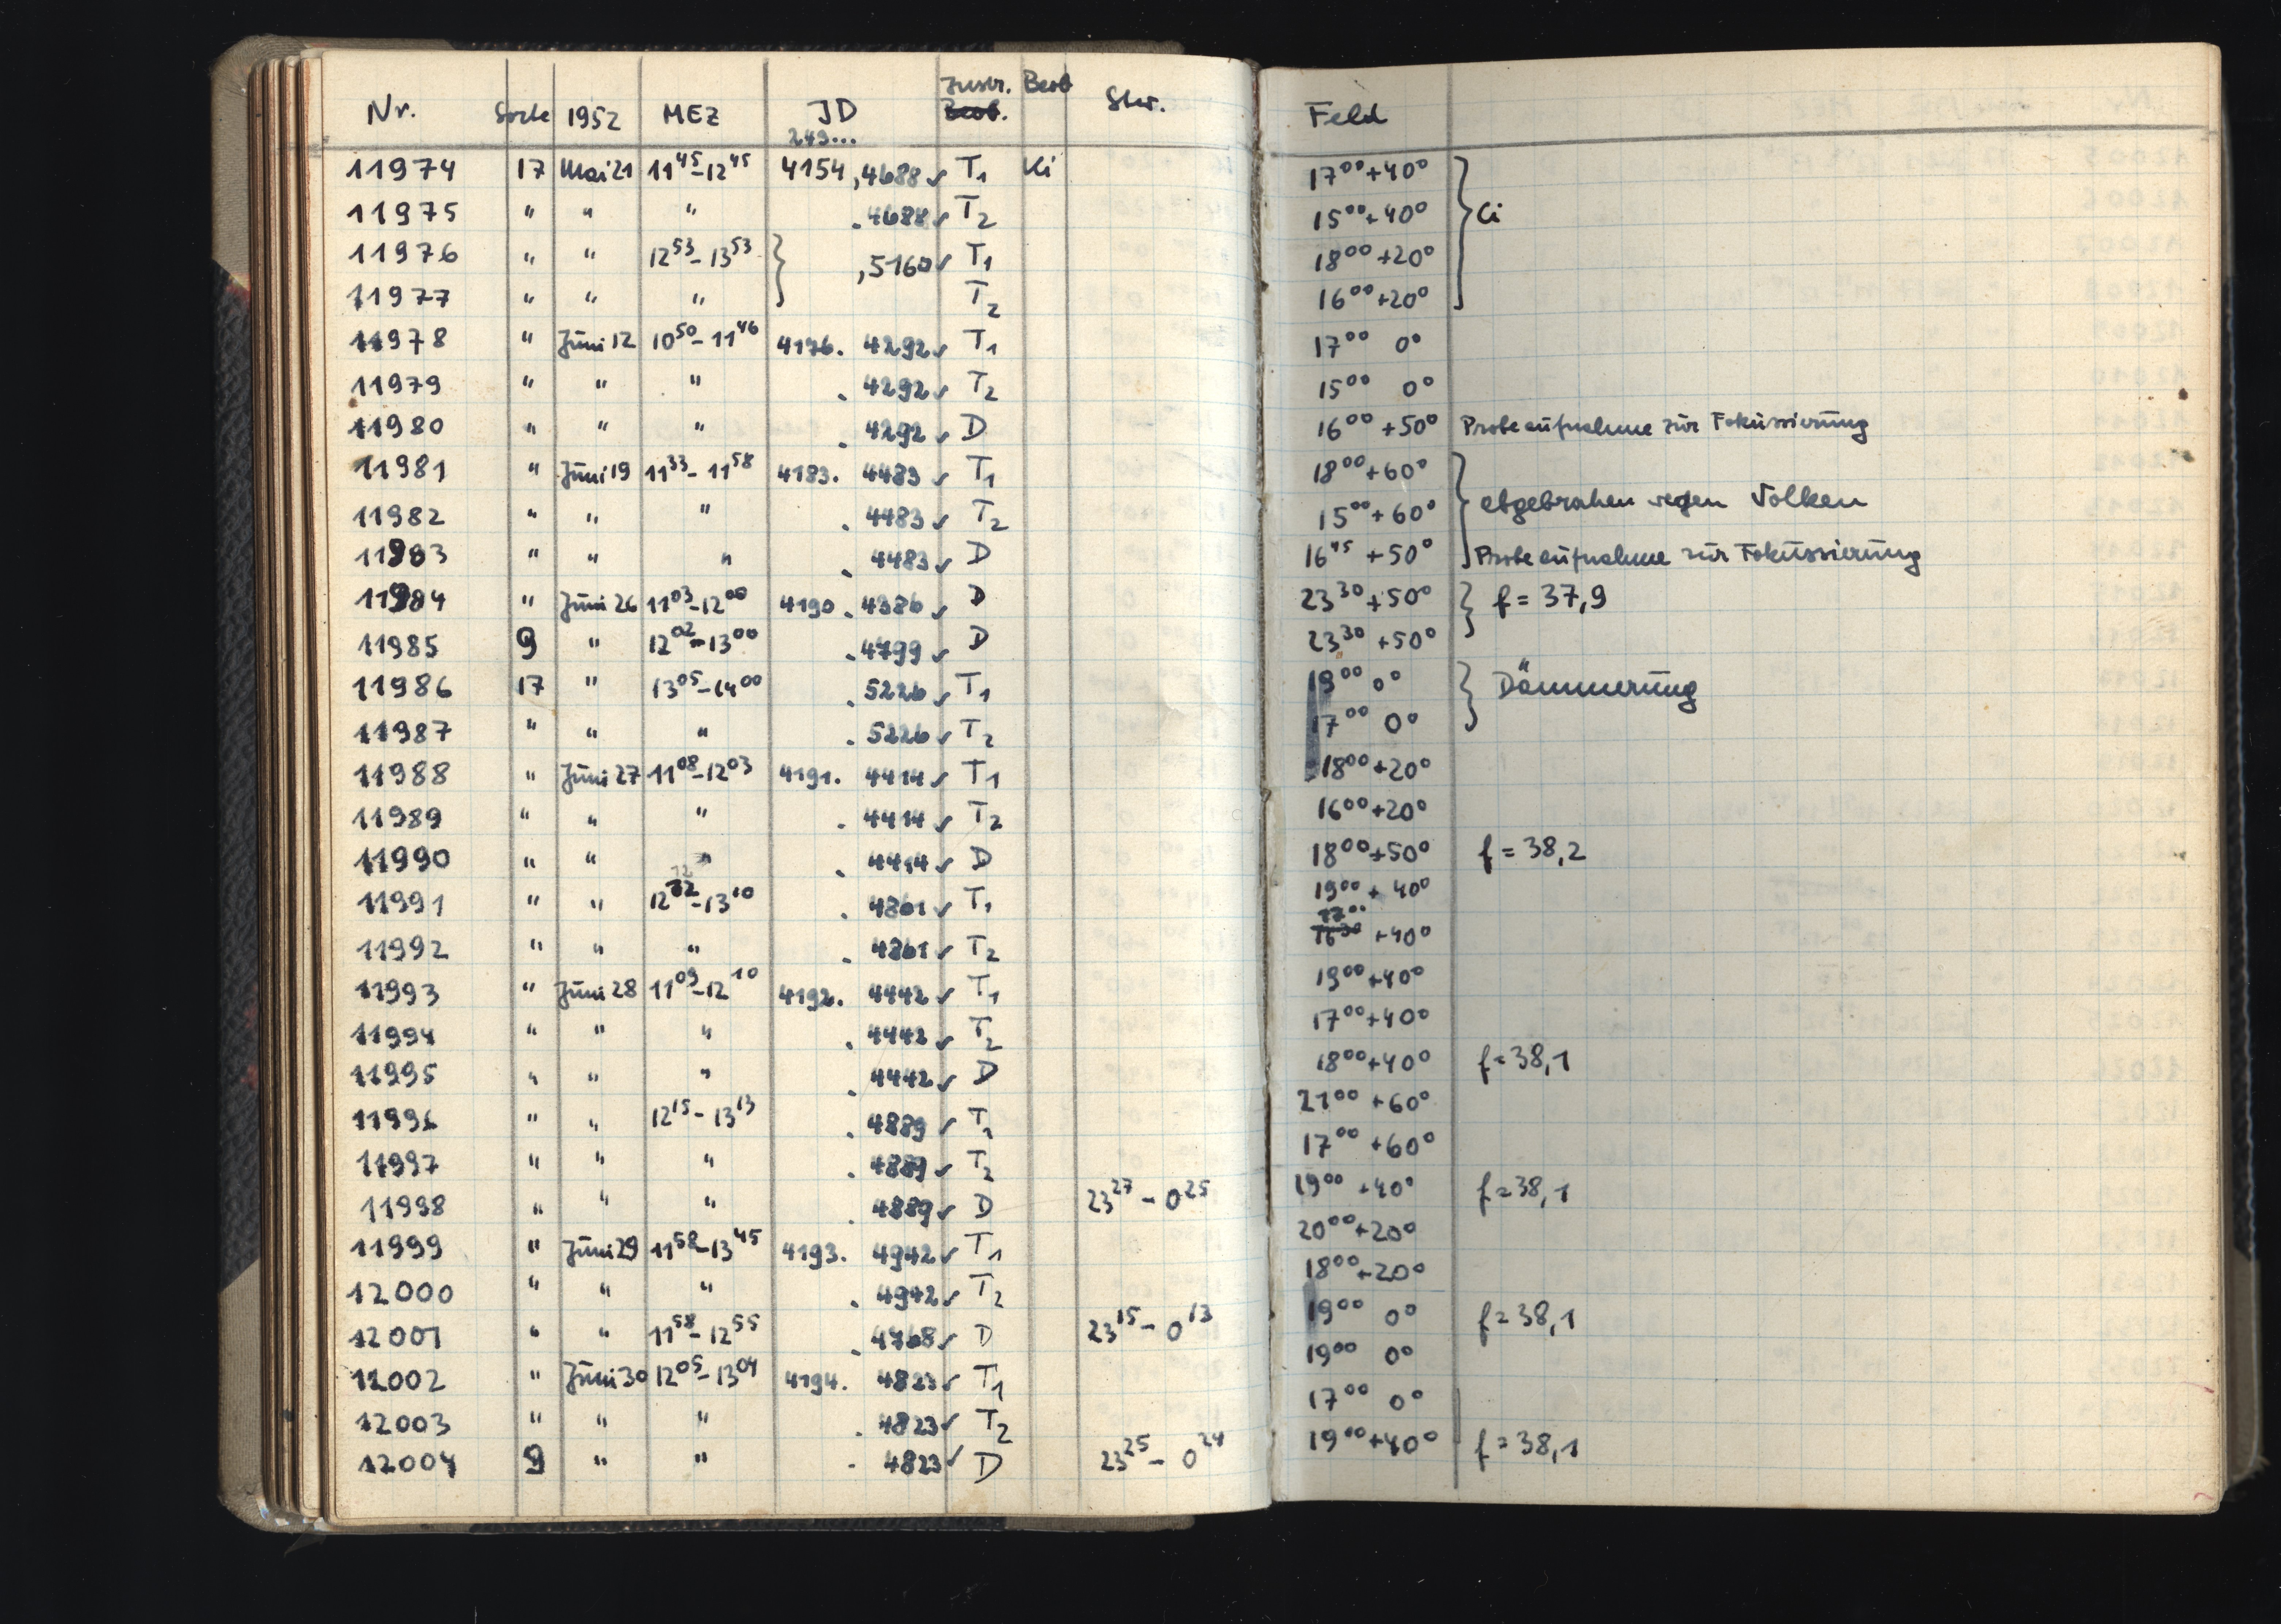 Nr. Sorte 1952 MEZ JD Instr. Beob Beob. Stw. Feld
243...
11974 17 Mai 21 11⁴⁵-12⁴⁵ 4154,4688 ✓ T₁ Ki 17⁰⁰+40°
11975 " " " .4688 ✓ T₂ 15⁰⁰+40° Ci
11976 " " 12⁵³-13⁵³ ,5160 ✓ T₁ 18⁰⁰+20°
11977 " " " T₂ 16⁰⁰+20°
11978 " Juni 12 10⁵⁰-11⁴⁶ 4176. 4292 ✓ T₁ 17⁰⁰ 0°
11979 " " " . 4292 ✓ T₂ 15⁰⁰ 0°
11980 " " " . 4292 ✓ D 16⁰⁰ +50° Probeaufnahme zur Fokussierung
11981 " Juni 19 11³³-11⁵⁸ 4183. 4483 ✓ T₁ 18⁰⁰+60°
11982 " " " . 4483 ✓ T₂ 15⁰⁰+60° abgebrochen wegen Wolken
11983 " " " . 4483 ✓ D 16⁴⁵ +50° Probeaufnahme zur Fokussierung
11984 " Juni 26 11⁰³-12⁰⁰ 4190. 4386 ✓ D 23³⁰+50° f = 37,9
11985 9 " 12⁰²-13⁰⁰ .4799 ✓ D 23³⁰ +50°
11986 17 " 13⁰⁵-14⁰⁰ . 5226 ✓ T₁ 19⁰⁰ 0° Dämmerung
11987 " " " . 5226 ✓ T₂ 17⁰⁰ 0°
11988 " Juni 27 11⁰⁸-12⁰³ 4191. 4414 ✓ T₁ 18⁰⁰+20°
11989 " " " . 4414 ✓ T₂ 16⁰⁰+20°
11990 " " " . 4414 ✓ D 18⁰⁰+50° f = 38,2
11991 " " 12¹²-13¹⁰ . 4861 ✓ T₁ 19⁰⁰ + 40°
11992 " " " . 4861 ✓ T₂ 17⁰⁰ 16³⁰ +40°
11993 " Juni 28 11⁰⁹-12¹⁰ 4192. 4442 ✓ T₁ 19⁰⁰+40°
11994 " " " . 4442 ✓ T₂ 17⁰⁰+40°
11995 " " " . 4442 ✓ D 18⁰⁰+40° f = 38,1
11996 " " 12¹⁵-13¹³ . 4889 ✓ T₁ 21⁰⁰ +60°
11997 " " " . 4889 ✓ T₂ 17⁰⁰ +60°
11998 " " " . 4889 ✓ D 23²⁷ - 0²⁵ 19⁰⁰ +40° f = 38,1
11999 " Juni 29 11⁵⁸-13⁴⁵ 4193. 4942 ✓ T₁ 20⁰⁰+20°
12000 " " " . 4942 ✓ T₂ 18⁰⁰+20°
12001 " " 11⁵⁸-12⁵⁵ . 4768 ✓ D 23¹⁵ - 0¹³ 19⁰⁰ 0° f = 38,1
12002 " Juni 30 12⁰⁵-13⁰⁴ 4194. 4823 ✓ T₁ 19⁰⁰ 0°
12003 " " " . 4823 ✓ T₂ 17⁰⁰ 0°
12004 9 " " . 4823 ✓ D 23²⁵ - 0²⁴ 19⁰⁰+40° f = 38,1